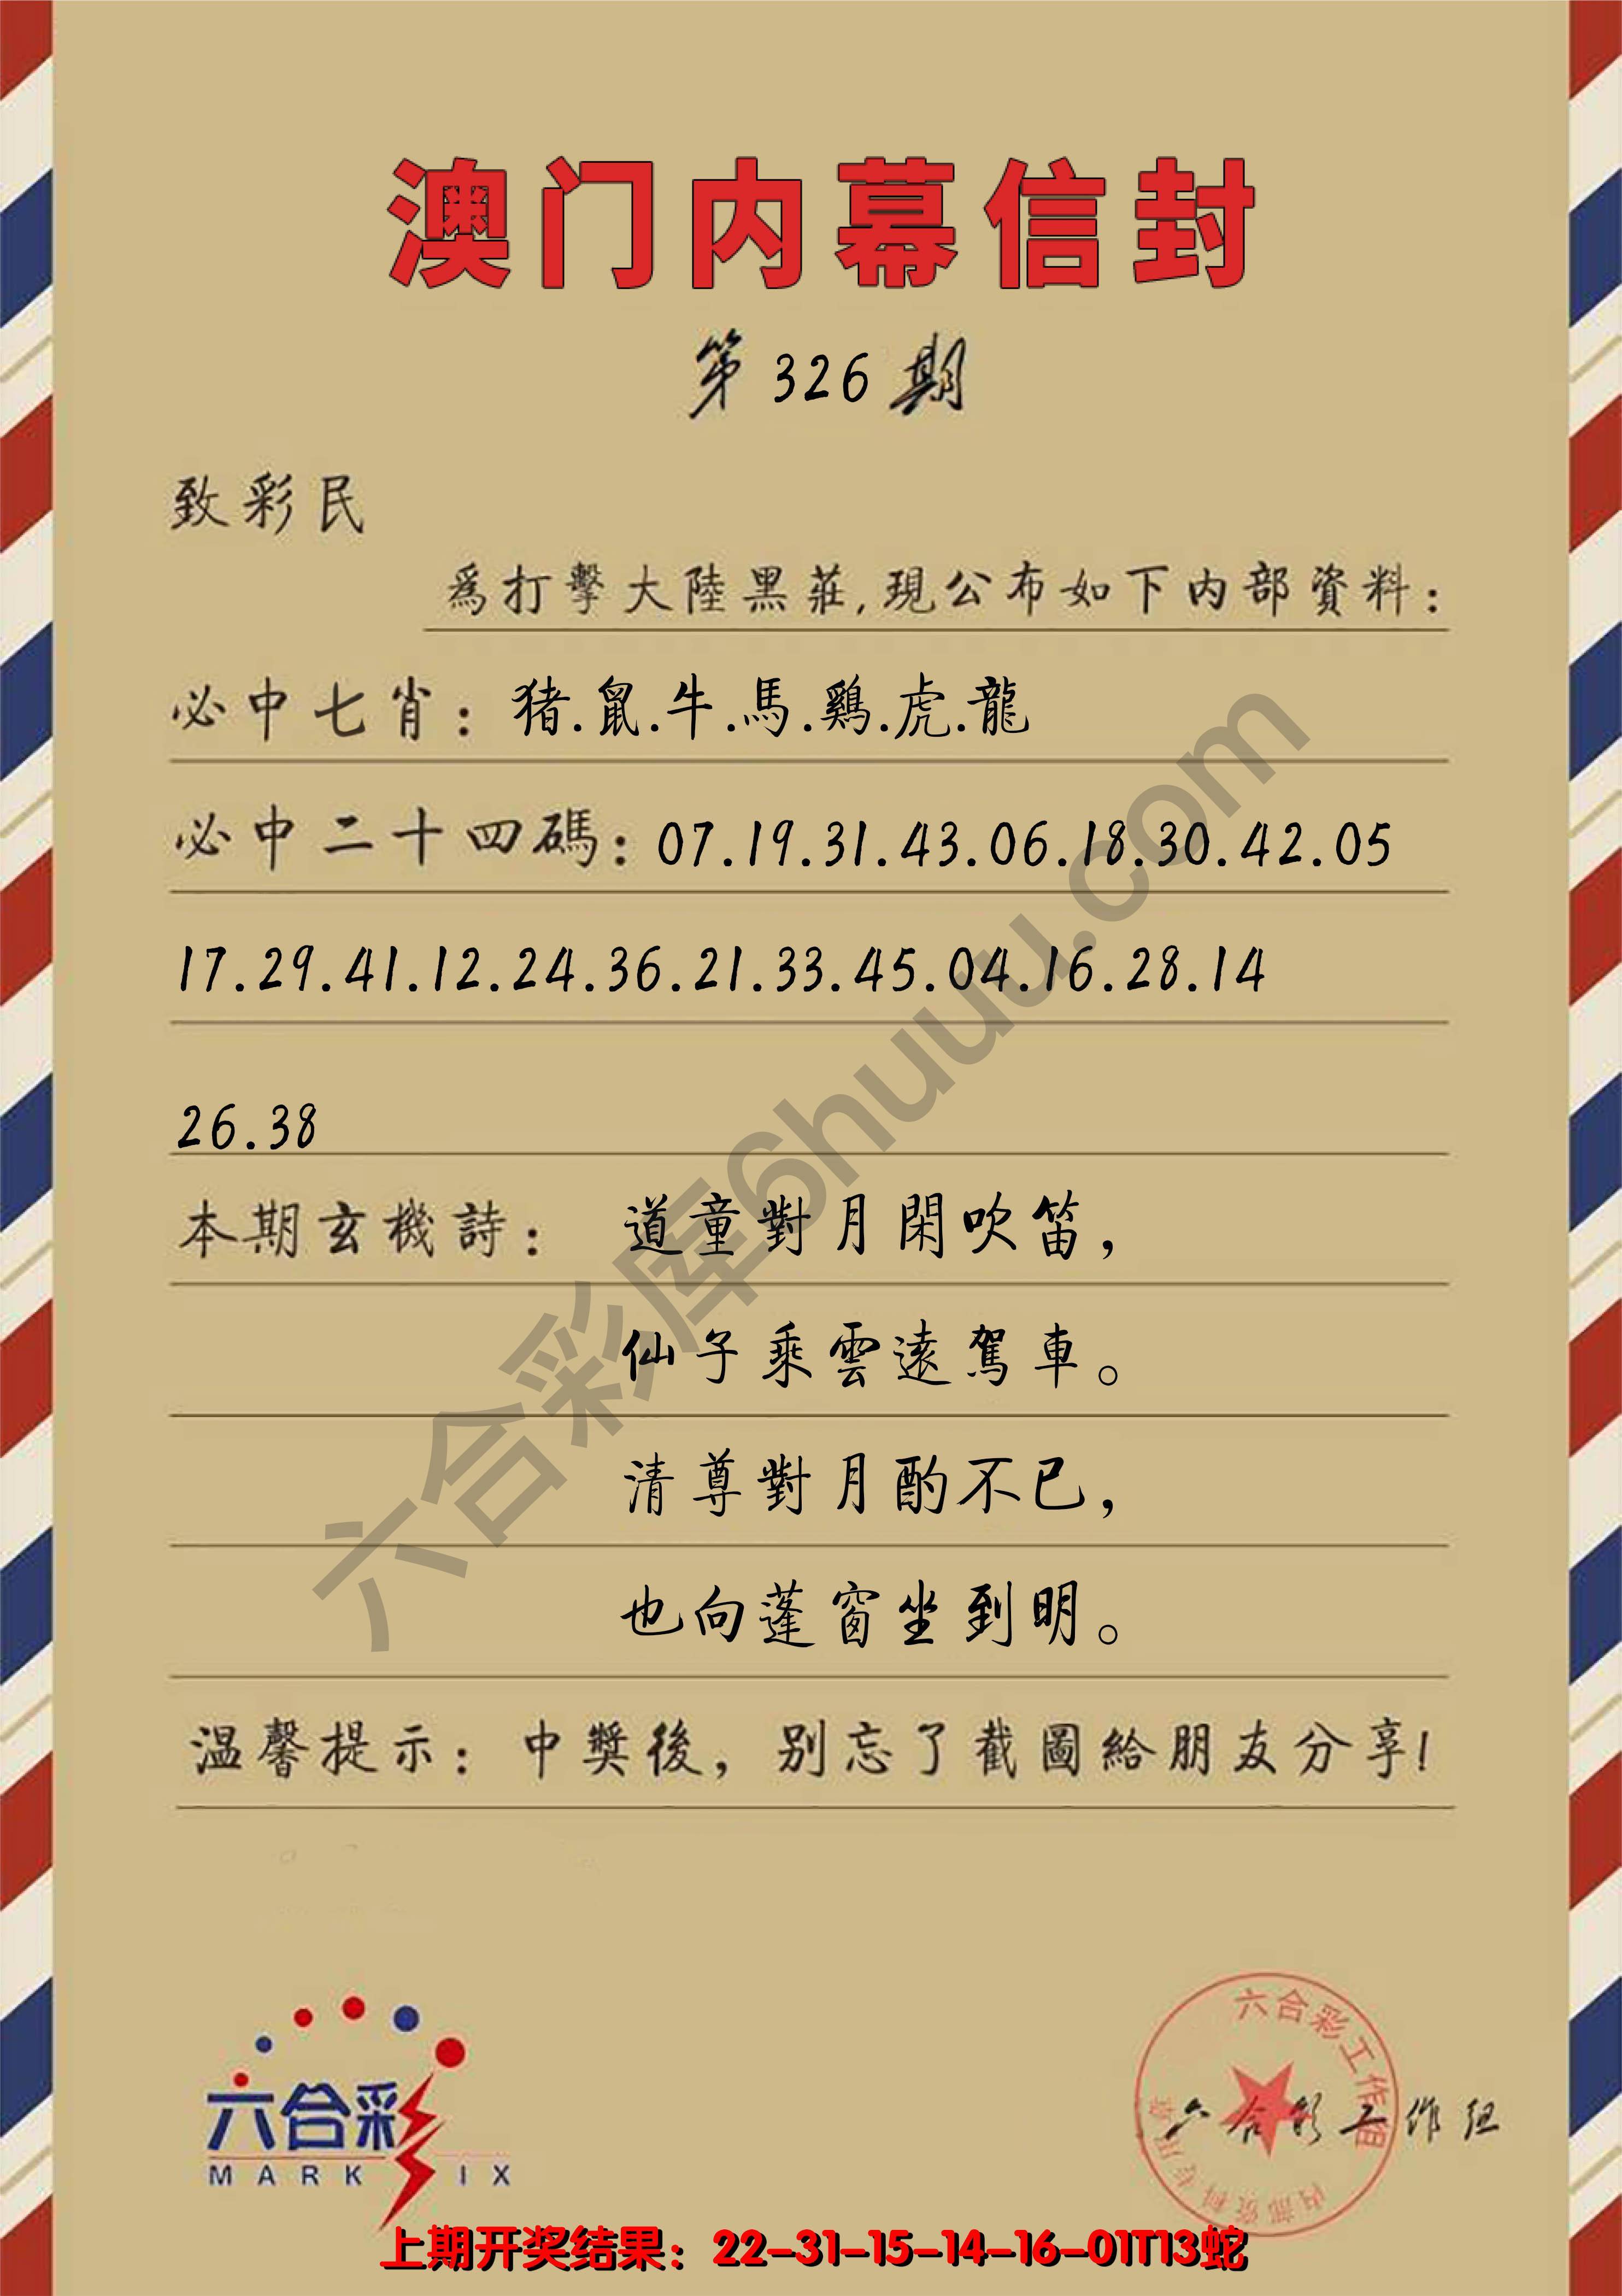 澳门内幕信封
第 326 期
致彩民
爲打擊大陸黑莊,現公布如下内部資料:
必中七肖: 猪.鼠.牛.馬.鷄.虎.龍
必中二十四碼: 07.19.31.43.06.18.30.42.05
17.29.41.12.24.36.21.33.45.04.16.28.14
26.38
本期玄機詩: 道童對月閑吹笛,
仙子乘雲遠駕車。
清尊對月酌不已,
也向蓬窗坐到明。
温馨提示: 中獎後, 别忘了截圖給朋友分享!
六合彩库6huuu.com
六合彩
MARK IX
六合彩工作组
内部资料专用章
六合彩工作组
上期开奖结果: 22-31-15-14-16-01T13蛇